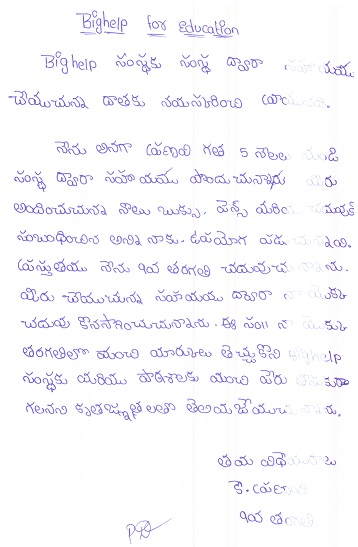 Bighelp for Education
Bighelp సంస్థకు సంస్థ ద్వారా సహాయము
చేయుచున్న దాతకు నమస్కరించి
నేను అనగా ప్రణవి గత 5 నెలల నుండి
సంస్థ ద్వారా సహాయము పొందుచున్నాను మీరు
అందించుచున్న నోటు బుక్కు. పెన్స్ మరియు
సంబంధించిన అన్ని నాకు. ఉపయోగ పడుచున్నాయి.
ప్రస్తుతము నేను 9వ తరగతి చదువుచున్నాను.
మీరు చేయుచున్న సహాయము ద్వారా నా యొక్క
చదువు కొనసాగించుచున్నాను. ఈ సం॥ నా యొక్క
తరగతిలో మంచి మార్కులు తెచ్చుకొని Bighelp
సంస్థకు మరియు పాఠశాలకు మంచి పేరు
గలనని కృతజ్ఞతలతో తెలియజేయుచున్నాను.
తమ విధేయురాలు
కె. ప్రణవి
9వ తరగతి